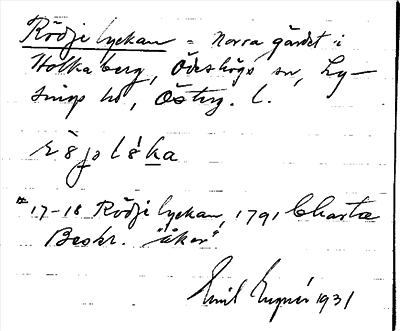 Rödje lyckan = Norra gärdet i
Holkaberg, Ödeshögs sn, Ly-
sings hd, Österg. l.
17-18 Rödje lyckan, 1791 Charta
Beskr. "åker".
Emil 1931